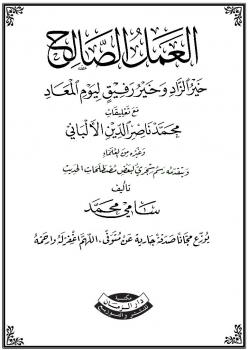 العمل الصالح
خير الزاد وخير رفيق ليوم المعاد
مع تعليقات
محمد ناصر الدين الألباني
وغيره من العلماء
ويتقدمه رسم شجري لبعض مصطلحات الحديث
تأليف
سامي محمد
يوزع مجانا صدقة جارية عن متوفى، اللهم اغفر له وارحمه
مكتبة
دار الزمان
للنشر والتوزيع